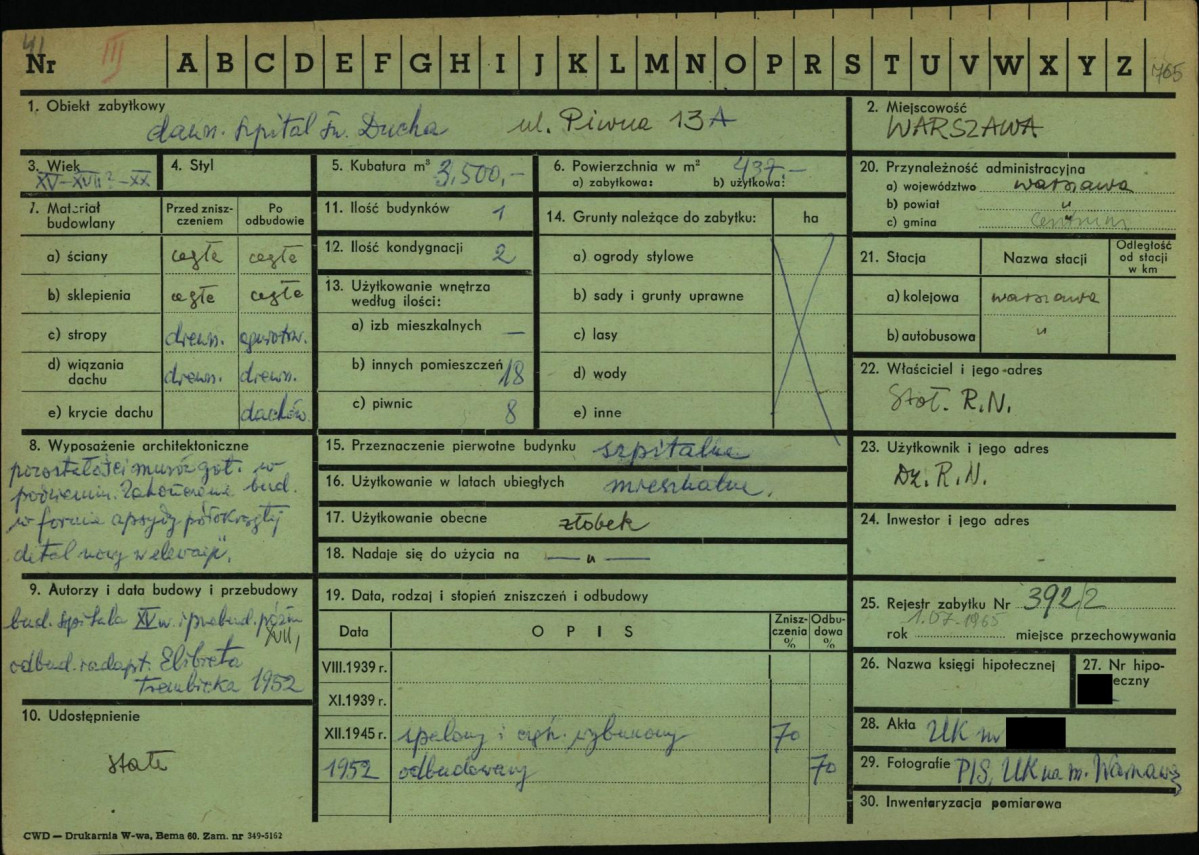 41
Nr III A B C D E F G H I J K L M N O P R S T U V W X Y Z 765
1. Obiekt zabytkowy
dawn. Szpital Św. Ducha ul. Piwna 13A
2. Miejscowość
WARSZAWA
3. Wiek
XV–XVII?–XX
4. Styl
5. Kubatura m³ 3.500,–
6. Powierzchnia w m² 437,–
a) zabytkowa: b) użytkowa:
20. Przynależność administracyjna
a) województwo warszawa
b) powiat "
c) gmina
7. Materiał budowlany
Przed zniszczeniem
Po odbudowie
a) ściany cegła cegła
b) sklepienia cegła cegła
c) stropy drewn. ogniotrw.
d) wiązania dachu drewn. drewn.
e) krycie dachu dachów.
11. Ilość budynków 1
12. Ilość kondygnacji 2
13. Użytkowanie wnętrza
według ilości:
a) izb mieszkalnych —
b) innych pomieszczeń 18
c) piwnic 8
14. Grunty należące do zabytku: ha
a) ogrody stylowe
b) sady i grunty uprawne
c) lasy
d) wody
e) inne
21. Stacja
Nazwa stacji
Odległość od stacji w km
a) kolejowa warszawa
b) autobusowa "
22. Właściciel i jego adres
Stoł. R.N.
8. Wyposażenie architektoniczne
pozostałości murów got. w
podziemiu. Zakończenie bud.
w formie apsydy półokrągłej
detal nowy w elewacji.
15. Przeznaczenie pierwotne budynku szpitalne
16. Użytkowanie w latach ubiegłych mieszkalne.
17. Użytkowanie obecne żłobek
18. Nadaje się do użycia na — " —
23. Użytkownik i jego adres
Dz. R.N.
24. Inwestor i jego adres
9. Autorzy i data budowy i przebudowy
bud. szpitala XV w. i przebud. późn.
XVII,
odbud. i adapt. Elżbieta
Trembicka 1952
19. Data, rodzaj i stopień zniszczeń i odbudowy
Data
OPIS
Zniszczenia %
Odbudowa %
VIII.1939 r.
XI.1939 r.
XII.1945 r. spalony i częśc. wyburzony 70
1952 odbudowany 70
25. Rejestr zabytku Nr 392/2
1.07.1965
rok miejsce przechowywania
26. Nazwa księgi hipotecznej
27. Nr hipoteczny
10. Udostępnienie
stałe
28. Akta UK nr
29. Fotografie PIS, UK na m. Warszawę
30. Inwentaryzacja pomiarowa
CWD — Drukarnia W-wa, Bema 60. Zam. nr 349-5162